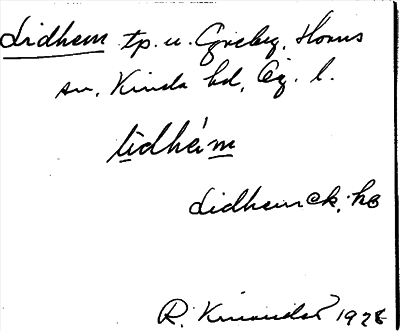 Lidhem tp. u. Grebg, Horns
sn, Kinda hd, Ög. l.
lìdhém
Lidhem ek. hb
R. Kinander 1928